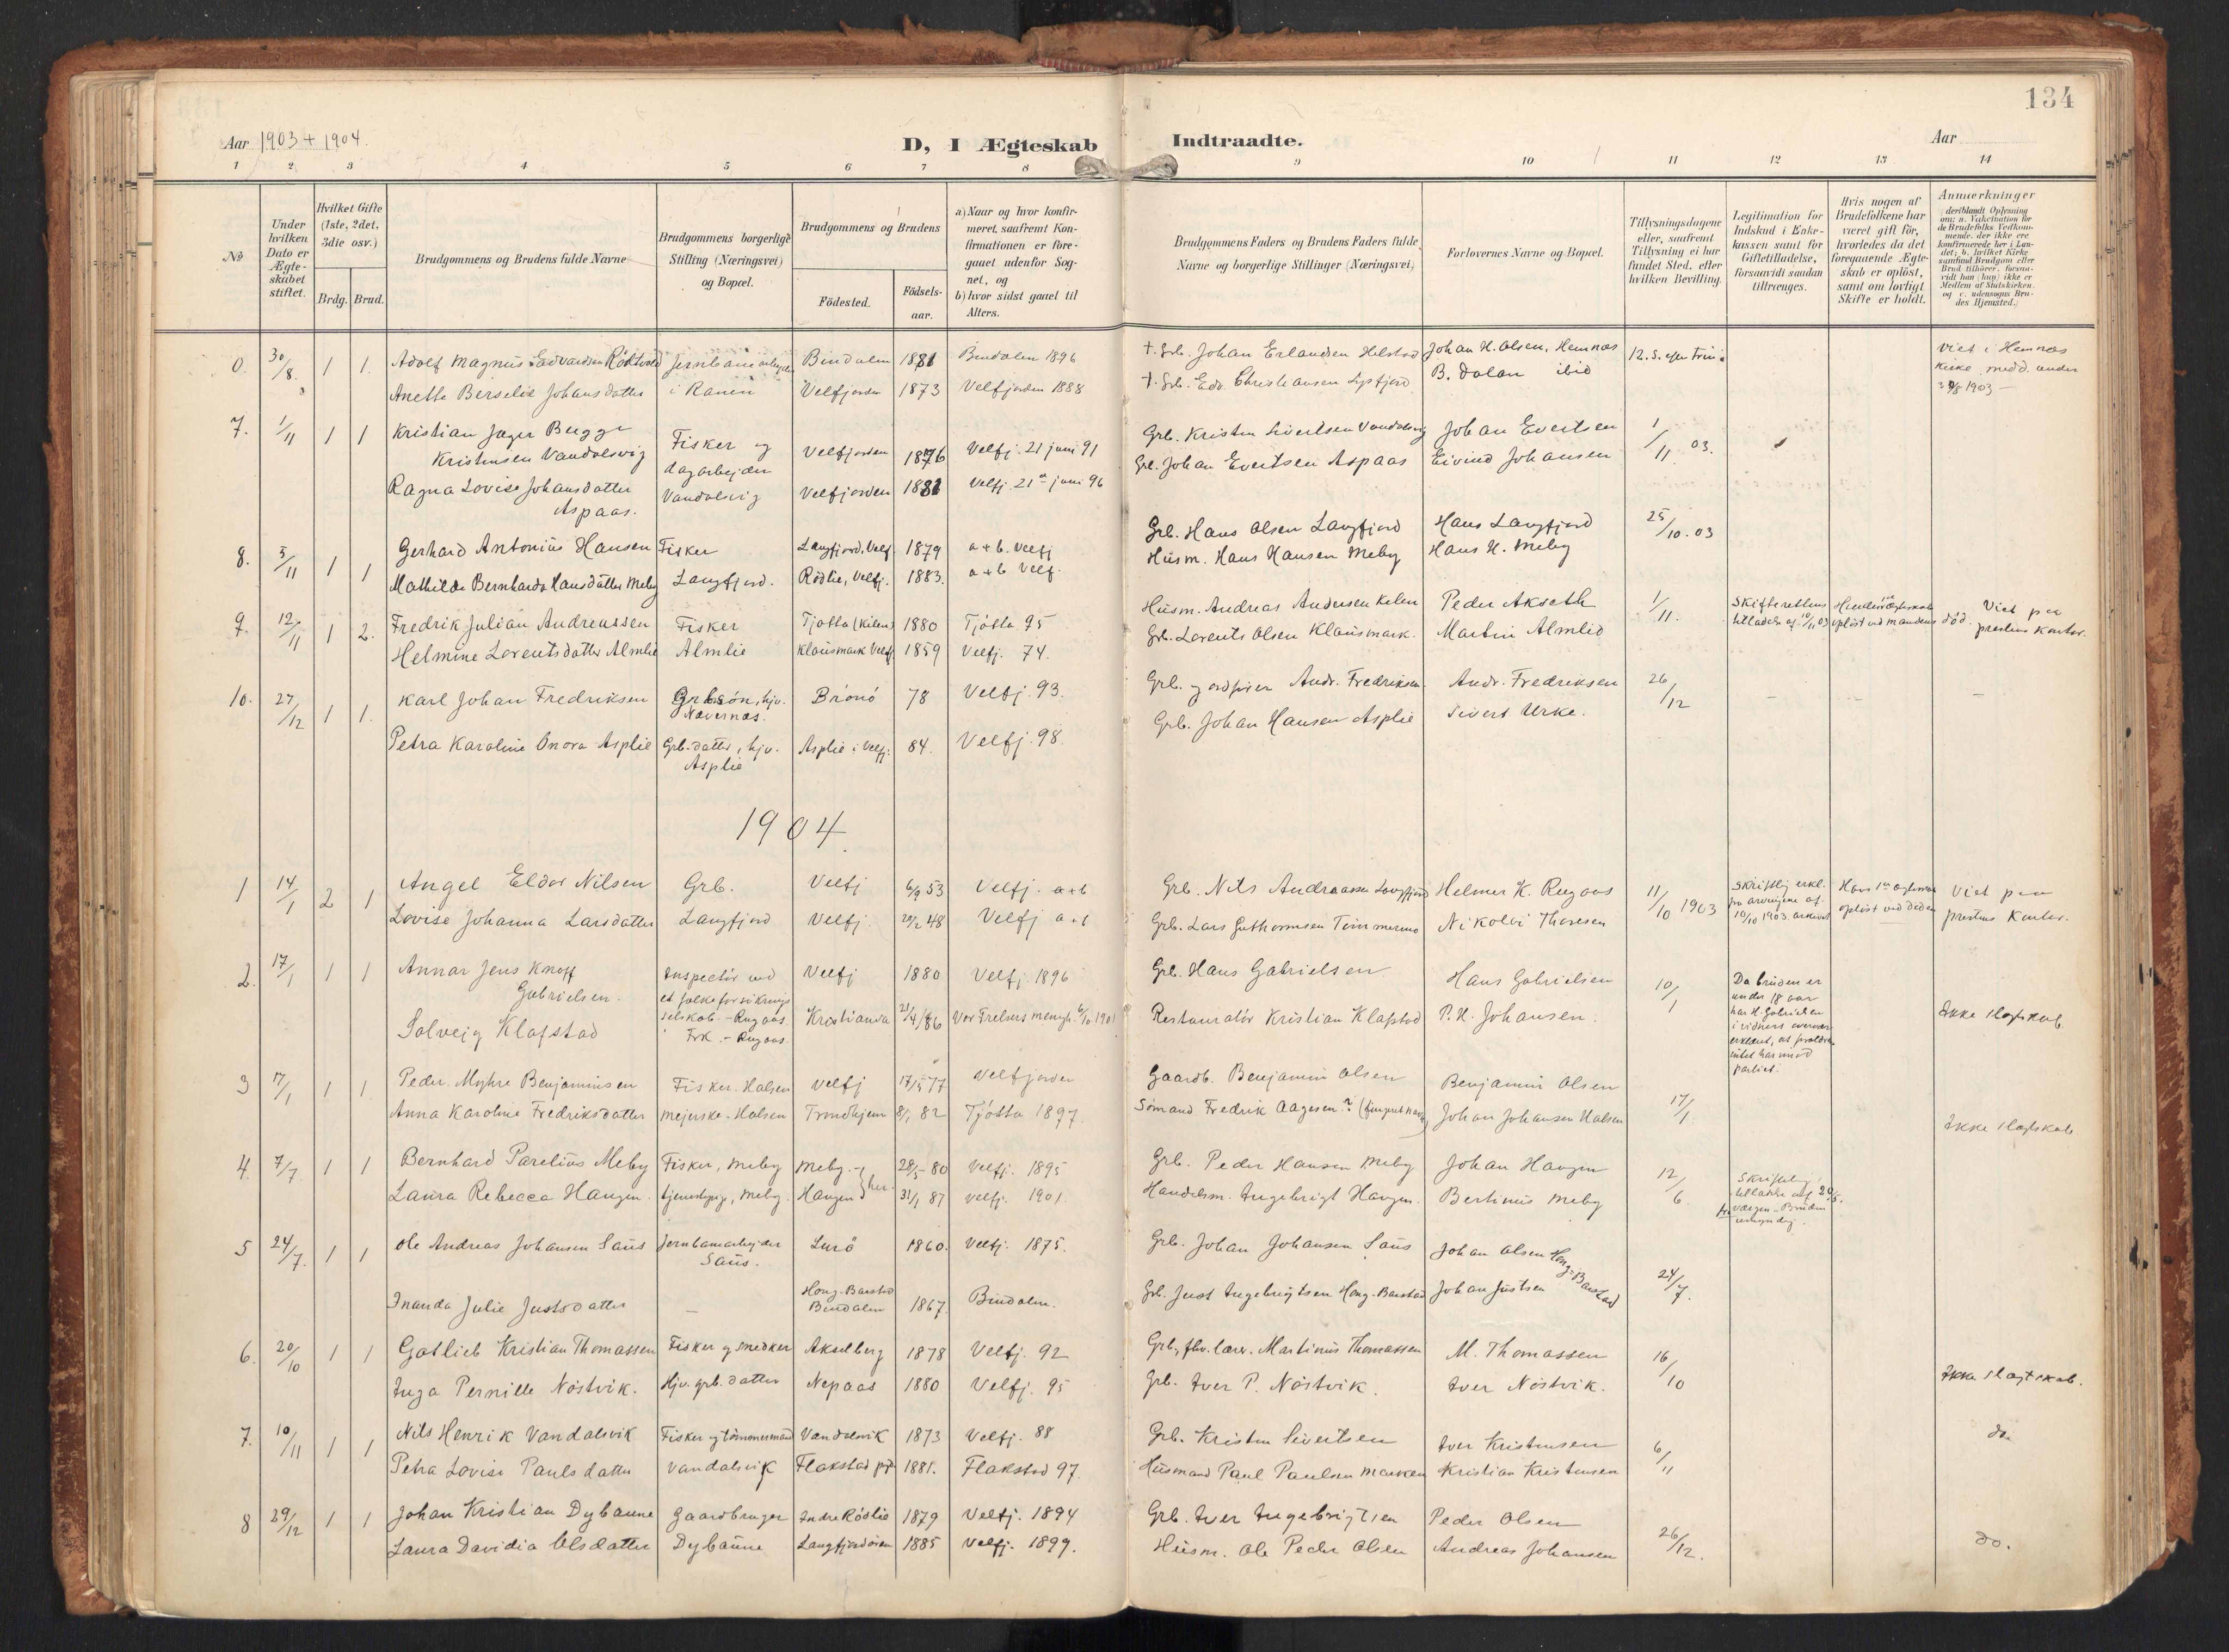 134
Aar 1903 + 1904.
D, I Ægteskab Indtraadte.
Aar
1 2 3 4 5 6 7 8 9 10 11 12 13 14
No
Under hvilken Dato er Ægteskabet stiftet.
Hvilket Gifte (1ste, 2det, 3die osv.)
Brdg. Brud.
Brudgommens og Brudens fulde Navne
Brudgommens borgerlige Stilling (Næringsvei) og Bopæl.
Brudgommens og Brudens
Födested.
Födselsaar.
a) Naar og hvor konfirmeret, saafremt Konfirmationen er foregaaet udenfor Sognet, og
b) hvor sidst gaaet til Alters.
Brudgommens Faders og Brudens Faders fulde Navne og borgerlige Stillinger (Næringsvei)
Forlovernes Navne og Bopæl.
Tillysningsdagene eller, saafremt Tillysning ei har fundet Sted, efter hvilken Bevilling.
Legitimation for Indskud i Enkekassen samt for Giftetilladelse, forsaavidt saadan tiltrænges.
Hvis nogen af Brudefolkene har været gift för, hvorledes da det foregaaende Ægteskab er oplöst, samt om lovligt Skifte er holdt.
Anmærkninger
0. 30/8. 1 1. Adolf Magnus Edvardsen Jernbanearbejder Bindalen 1881 Bindalen 1896 + Grb. Johan Erlandsen Helstad Johan H. Olsen, Hemnæs 12. S. efter Trin. Viet i Hemnæs
Anette Berselie Johansdatter i Ranen Velfjorden 1873 Velfjorden 1888 + Grb. Edv. Christiansen B. Dalan ibid kirke medd. under
1903
7. 1/11 1 1 Kristian Jæger Bugge Grb. Kristen Sivertsen Vandalsvig Johan Evertsen 1/11 03.
Kristensen Vandalsvig Fisker og dagarbejder Velfjorden 1876 Velfj. 21 juni 91 Grb. Johan Evertsen Aspaas Eivind Johansen
Ragna Lovise Johansdatter Vandalsvig Velfjorden 1881 Velfj. 21 juni 96
Aspaas.
8. 5/11 1 1 Gerhard Antonius Hansen Fisker Langfjord, Velf. 1879 a + b. Velfj Grb. Hans Olsen Langfjord Hans Langfjord 25/10. 03
Mathilde Bernharda Hansdatter Meby Langfjord. Rödlie, Velfj. 1883. a + b Velf. Husm. Hans Hansen Meby Hans H. Meby
9. 12/11 1 2. Fredrik Julian Andreassen Fisker Tjötta (Kilen) 1880 Tjötta 95 Husm. Andreas Andersen Kilen Peder Akseth 1/11. Skifterettens Hendes ægteskab Viet paa
Helmine Lorentsdatter Almlie Almlie Klausmark Velf 1859 Velfj. 74. Grb. Lorents Olsen Klausmark. Martin Almlid oplöst ved mandens död. prestens kontor.
10. 27/12 1 1. Karl Johan Fredriksen Grbsön, hjv. Brönö 78 Velfj. 93. Grb. Andr. Fredriksen Andr. Fredriksen 26/12 - - -
Nævernæs. Grb. Johan Hansen Asplie Sivert Urke.
Petra Karoline Onora Asplie Grb. datter, hjv. Asplie i Velfj. 84. Velfj. 98.
Asplie
1904
1 14/1 2 1 Angel Eldor Nilsen Grb. Velfj 6/9 53 Velfj. a + b Grb. Nils Andreassen Langfjord Helmer K. Rugaas 11/10 1903 Skriftlig erkl. fra arvingene af 10/10 1903 Hans 1ste ægteskab oplöst ved döden Viet paa
Lovise Johanna Larsdatter Langfjord Velfj. 20/2 48 Velfj a + b Grb. Lars Guthormsen Timmermo Nikolai Thoresen prestens kontor.
2. 17/1 1 1 Annar Jens Knoff Inspectör ved Velfj 1880 Velfj. 1896 Grb. Hans Gabrielsen Hans Gabrielsen 10/1 Da bruden er
Gabrielsen. et folkeforsikrings under 18 aar
selskab. - Rugaas. har H. Gabrielsen
Solvejg Klafstad Frk. - Rugaas. Kristiania 21/4 86 Vor Frelsers menigh. 6/10 1901 Restauratör Kristian Klafstad P. H. Johansen. i vidners overvær erklæret, at forældre intet har imod partiet. Ikke slægtskab.
3 17/1 1 1. Peder Myhre Benjaminsen Fisker. Halsen Velfj 17/5 77 Velfjorden Gaardb. Benjamin Olsen Benjamin Olsen 17/1
Anna Karoline Fredriksdatter Mejerske - Halsen Trondhjem 8/1 82 Tjötta 1897. Sömand Fredrik Aagesen? Johan Johansen Halsen Ikke slægtskab
4. 7/7. 1 1 Bernhard Parelius Meby Fisker, Meby Meby 28/5 80 Velfj. 1895 Grb. Peder Hansen Meby Johan Haugen 12/6 Skriftlig
Laura Rebecca Haugen. tjenestepige, Meby. Haugen her. 31/1 87 Velfj. 1901. Handelsm. Ingebrigt Haugen. Bertinus Meby tilladelse af fra værgen - Bruden umyndig.
5 24/7. 1 1 Ole Andreas Johansen Saus Jernbanearbejder Lurö 1860. Velfj. 1875. Grb. Johan Johansen Saus Johan Olsen Hong-Barstad
Saus.
Inanda Julie Justsdatter - Hong-Barstad Bindalen 1867. Bindalen. Grb. Just Ingebrigtsen Hong-Barstad Johan Justsen 24/7.
6. 20/10 1 1 Gotlieb Kristian Thomassen Fisker og snedker Akselberg 1878 Velfj. 92 Grb., fhv. lærer. Martinus Thomassen M. Thomassen 16/10
Inga Pernille Nöstvik. Hjv. grb. datter Nepaas 1880 Velfj. 95 Grb. Iver P. Nöstvik. Iver Nöstvik. Ikke slægtskab.
7. 10/11 1 1 Nils Henrik Vandalsvik Fisker og tömmermand Vandalsvik 1873 Velfj. 88 Grb. Kristen Sivertsen Iver Kristensen 6/11 do.
Petra Lovise Paulsdatter Vandalsvik Flakstad 1881. Flakstad 97. Husmand Paul Paulsen Marken Kristian Kristensen
8 29/12 1 1 Johan Kristian Dybaune Gaardbruger Indre Röslie 1879 Velfj. 1894 Grb. Iver Ingebrigtsen Peder Olsen 26/12.
Laura Davidia Olsdatter Dybaune Langfjordören 1885 Velfj. 1899. Husm. Ole Peder Olsen Andreas Johansen do.